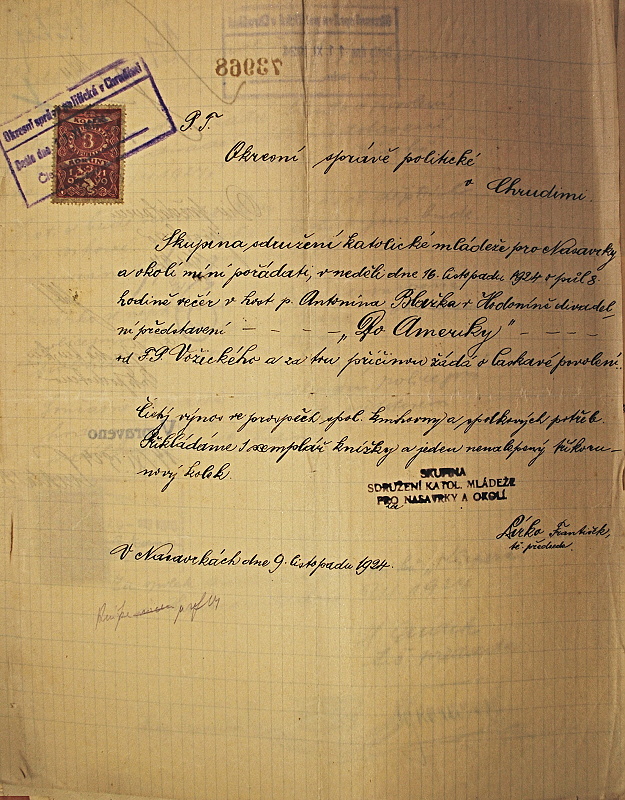 Okresní správa politická v Chrudimi
Došlo dne
3
P. T.
Okresní správě politické
v Chrudimi.
Skupina sdružení katolické mládeže pro Nasavrky
a okolí míní pořádati, v neděli dne 16. listopadu 1924 v půl 8.
hodině večer v host p. Antonína v Hodoníně divadel-
ní představení - - - - "Do Ameriky" - - - -
od F. S. Vožického a za tou příčinou žádá o laskavé povolení.
Čistý výnos ve prospěch spol. knihovny a spolkových potřeb.
Přikládáme 1 exemplář knížky a jeden nenalepený tříkoru-
nový kolek.
SKUPINA
SDRUŽENÍ KATOL. MLÁDEŽE
PRO NASAVRKY A OKOLÍ
František,
t. č. předseda.
V Nasavrkách dne 9. listopadu 1924.